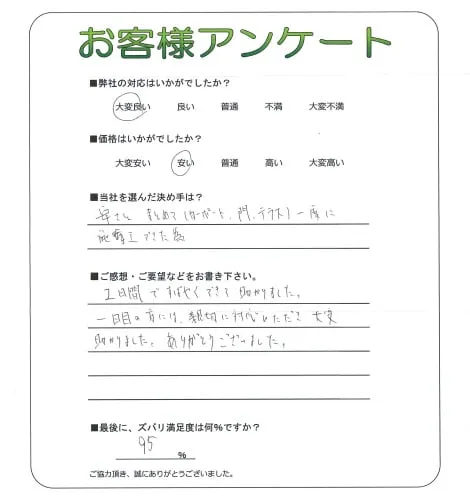 お客様アンケート
■弊社の対応はいかがでしたか？
大変良い 良い 普通 不満 大変不満
■価格はいかがでしたか？
大変安い 安い 普通 高い 大変高い
■当社を選んだ決め手は？
まとめて(カーポート、門、テラス)一度に
できた為
■ご感想・ご要望などをお書き下さい。
2日間ですばやくできて助かりました。
一日目の方には、親切に対応いただき大変
助かりました。ありがとうございました。
■最後に、ズバリ満足度は何％ですか？
95
％
ご協力頂き、誠にありがとうございました。